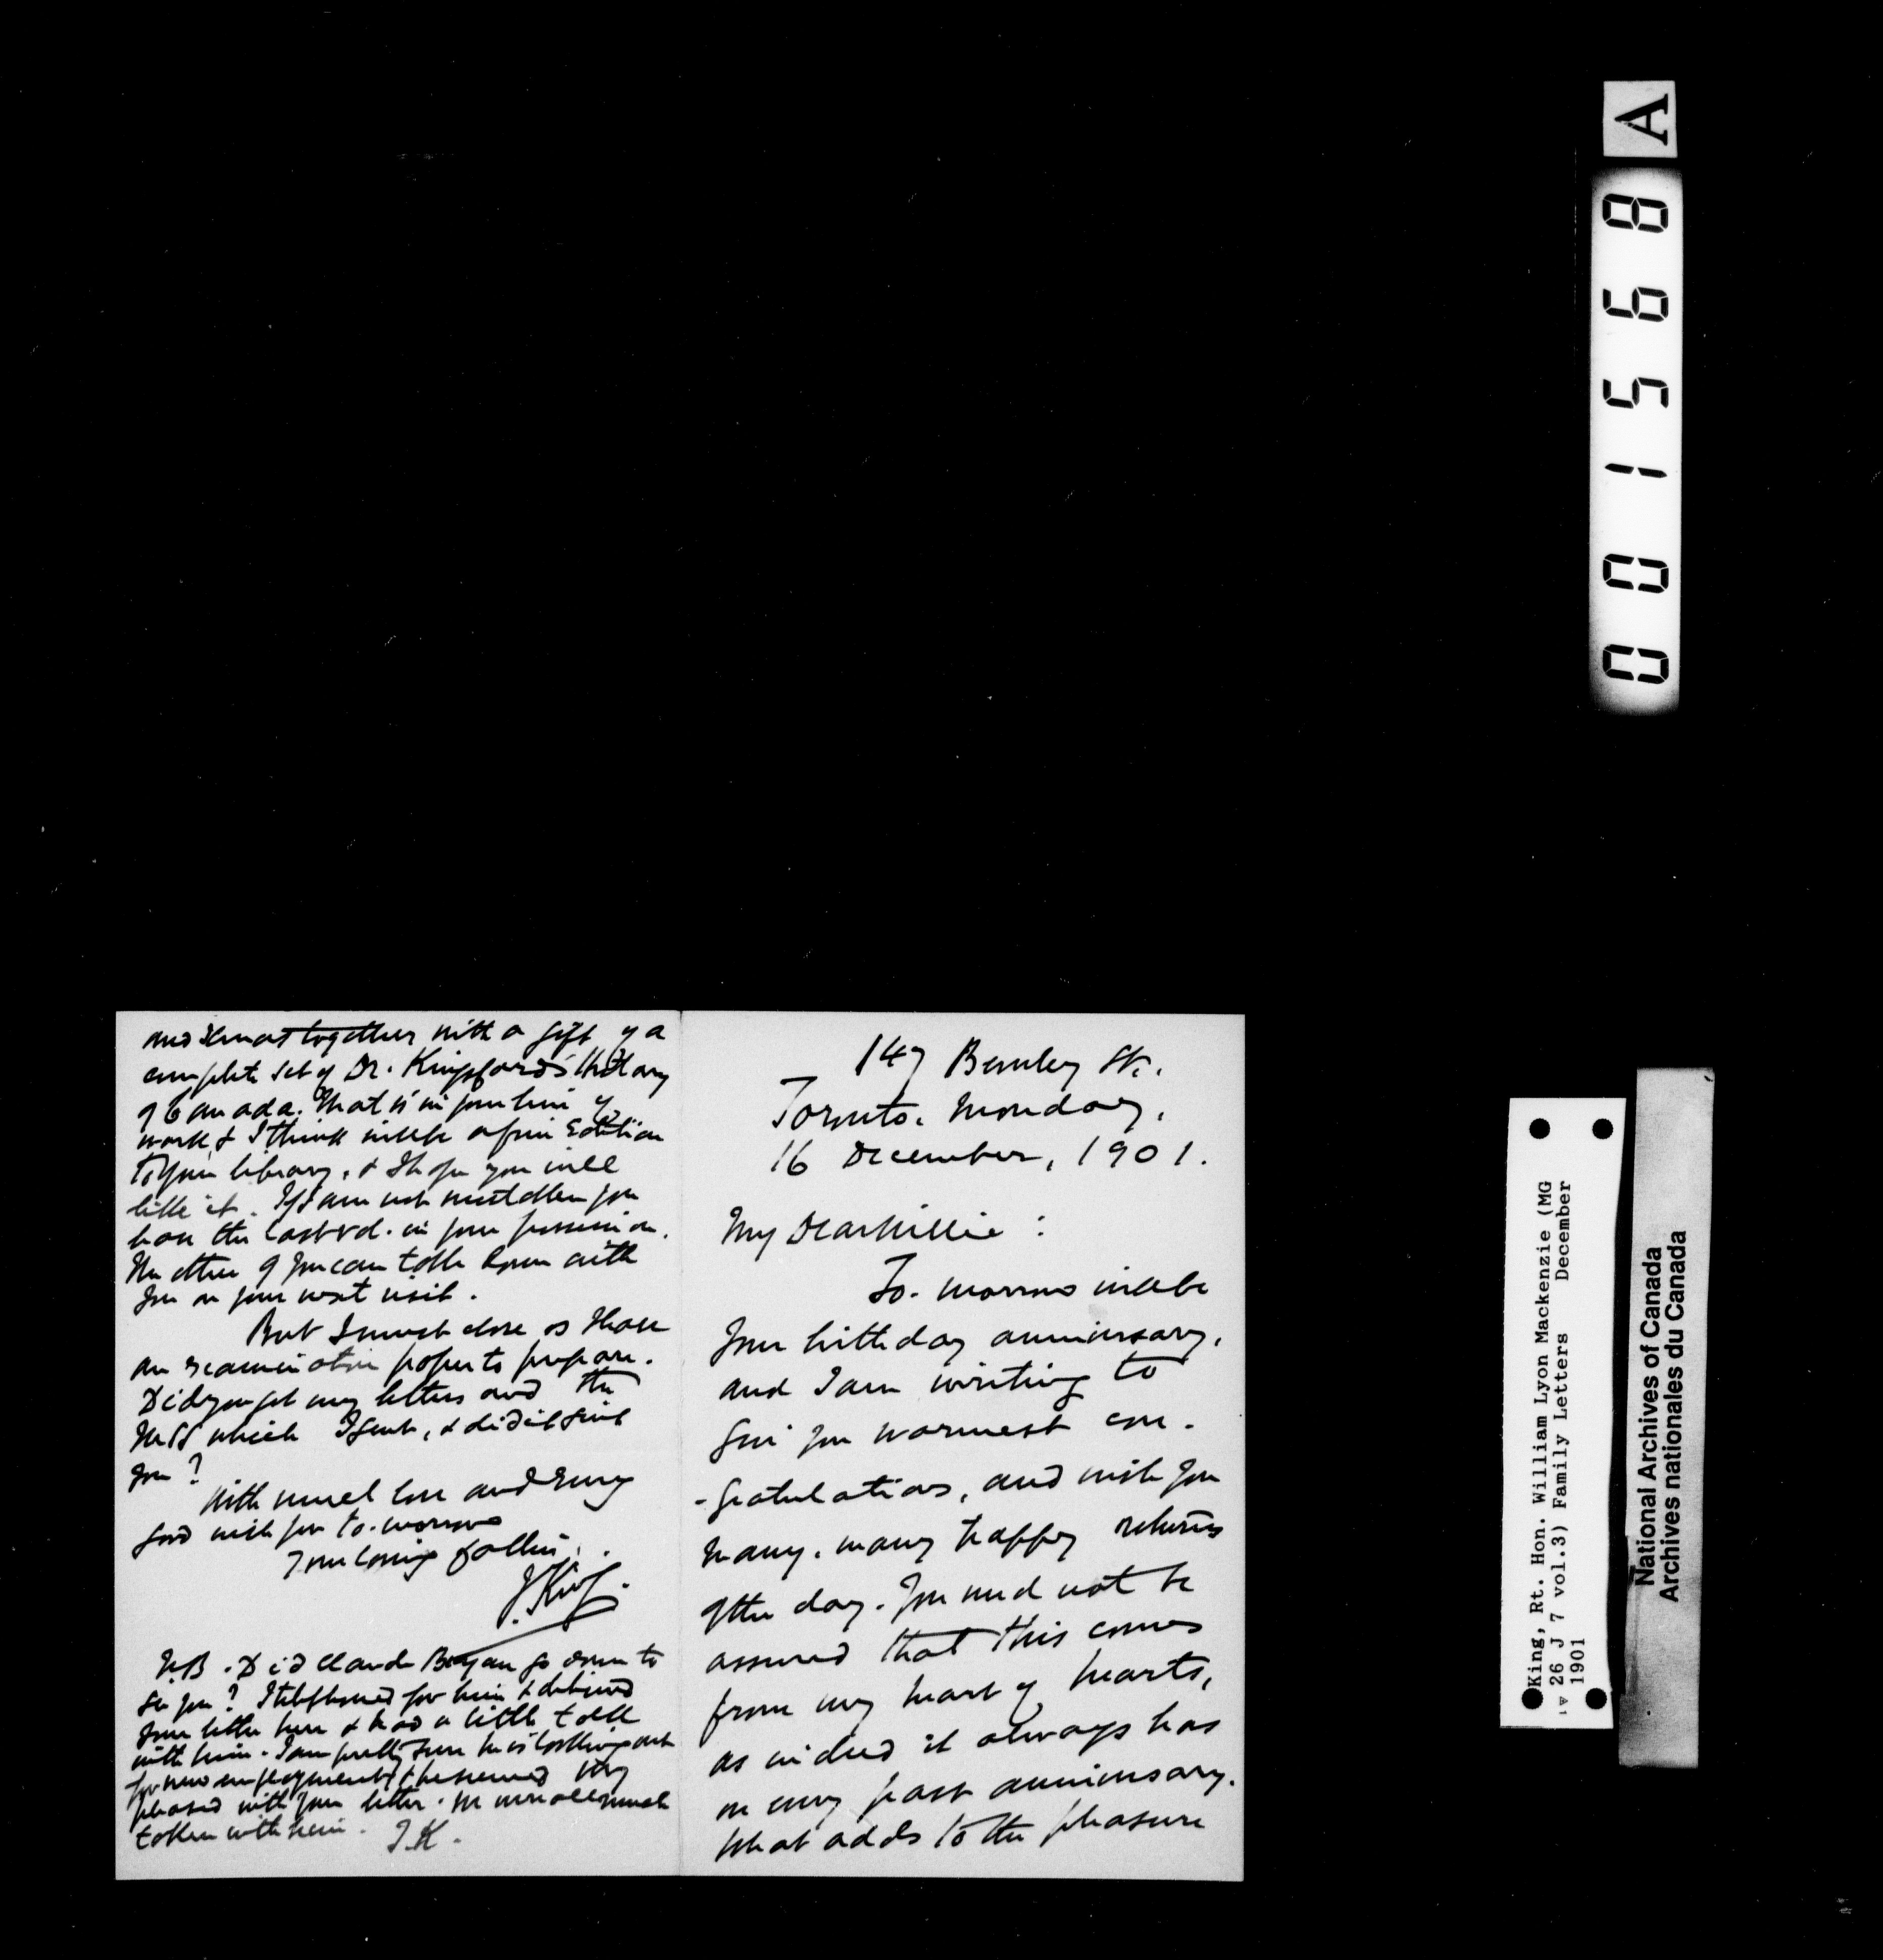 147 Beverley St.,
Toronto. Monday,
16 December, 1901.
My Dear Willie :
To-morrow will be
your birthday anniversary,
and I am writing to
give you warmest con-
-gratulations, and wish you
many, many happy returns
of the day. You need not be
assured that this comes
from my heart of hearts,
as indeed it always has
on every past anniversary.
What adds to the pleasure
and almost together with a gift of a
complete set of Dr. Kingsford's History
of Canada. That is in your line of
work & I think will be a fine addition
to your library, & I hope you will
like it. If I am not mistaken you
have the last vol. in your possession.
The others you can take down with
you on your next visit.
But I must close as I have
an examination paper to prepare.
Did you get my letters and the
MSS which I sent, & did it suit
you?
With much love and every
good wish for to-morrow
Your loving father,
J. King.
N.B. Did Claude Bryan go down to
see you? I telephoned for him & delivered
your letter here & had a little talk
with him. I am pretty sure he is looking out
for new employment, & he seemed very
pleased with your letter. We were all much
taken with him. J.K.
A
001568
King, Rt. Hon. William Lyon Mackenzie (MG
26 J 7 vol.3) Family Letters December
1901
National Archives of Canada
Archives nationales du Canada